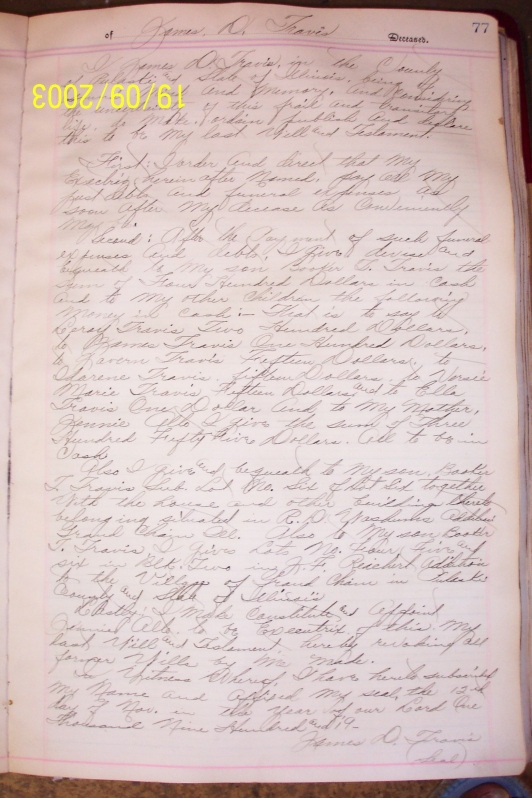 77
of James. D. Travis Deceased.
I James D Travis, in the County
of Pulaski and State of Illinois, being of
and Memory, and Considering
the of this frail and transitory
life. do Make, ordain, publish and declare
this to be My last Will and Testament.
First: I order and direct that My
Executrix hereinafter Named, pay all My
Just debts and funeral expenses as
soon after My decease as Conveniently
May
Second: After the Payment of such funeral
expenses and debts, I give, devise and
bequeath to My son Booker T. Travis the
Sum of Four Hundred Dollars in Cash
and to My other Children the following
Money in Cash - That is to say to
Leroy Travis Two Hundred Dollars,
to James Travis One Hundred Dollars,
to Lavern Travis Fifteen Dollars. to
Travis. fifteen Dollars. to
Marie Travis, Fifteen Dollars, and to Ella
Travis One Dollar and to My Mother,
Jennie Alto I give the sum of Three
Hundred Fifty Five Dollars. All to be in
Cash
Also I give and bequeath to My son. Booker
T. Travis Sub Lot No. Six of together
With the house and other building thereto
belonging situated in R. D. Addition
Grand Chain Ill. Also to My son Booker
T. Travis, I give Lots No. Four, Five and
six in Blk. Two in J. F. Reichert Addition
to the Village of Grand Chain in Pulaski
County and State of Illinois
Lastly: I Make Constitute and Appoint
Jennie Alto. to be Executrix of this My
last Will and Testament, hereby revoking all
former Wills by Me Made.
In Witness Whereof, I have hereto subscribed
My Name and Affixed My seal, the 12th
day of Nov. in the Year of our Lord One
Thousand Nine Hundred and 19-
James D. Travis
(Seal)
19/09/2003